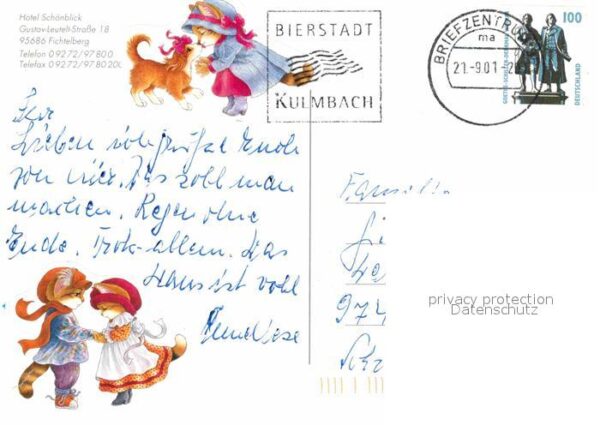 Hotel Schönblick
Gustav-Leutelt-Straße 18
95686 Fichtelberg
Telefon 09272/97800
Telefax 09272/978020
BIERSTADT
KULMBACH
BRIEFZENTRUM
ma
21.-9.01
100
DEUTSCHLAND
Ihr
Lieben viele Grüße Euch
von hier. Was soll man
machen. Regen ohne
Ende. Trotz-allem. Das
Haus ist voll
Anneliese
Familie
974
privacy protection
Datenschutz